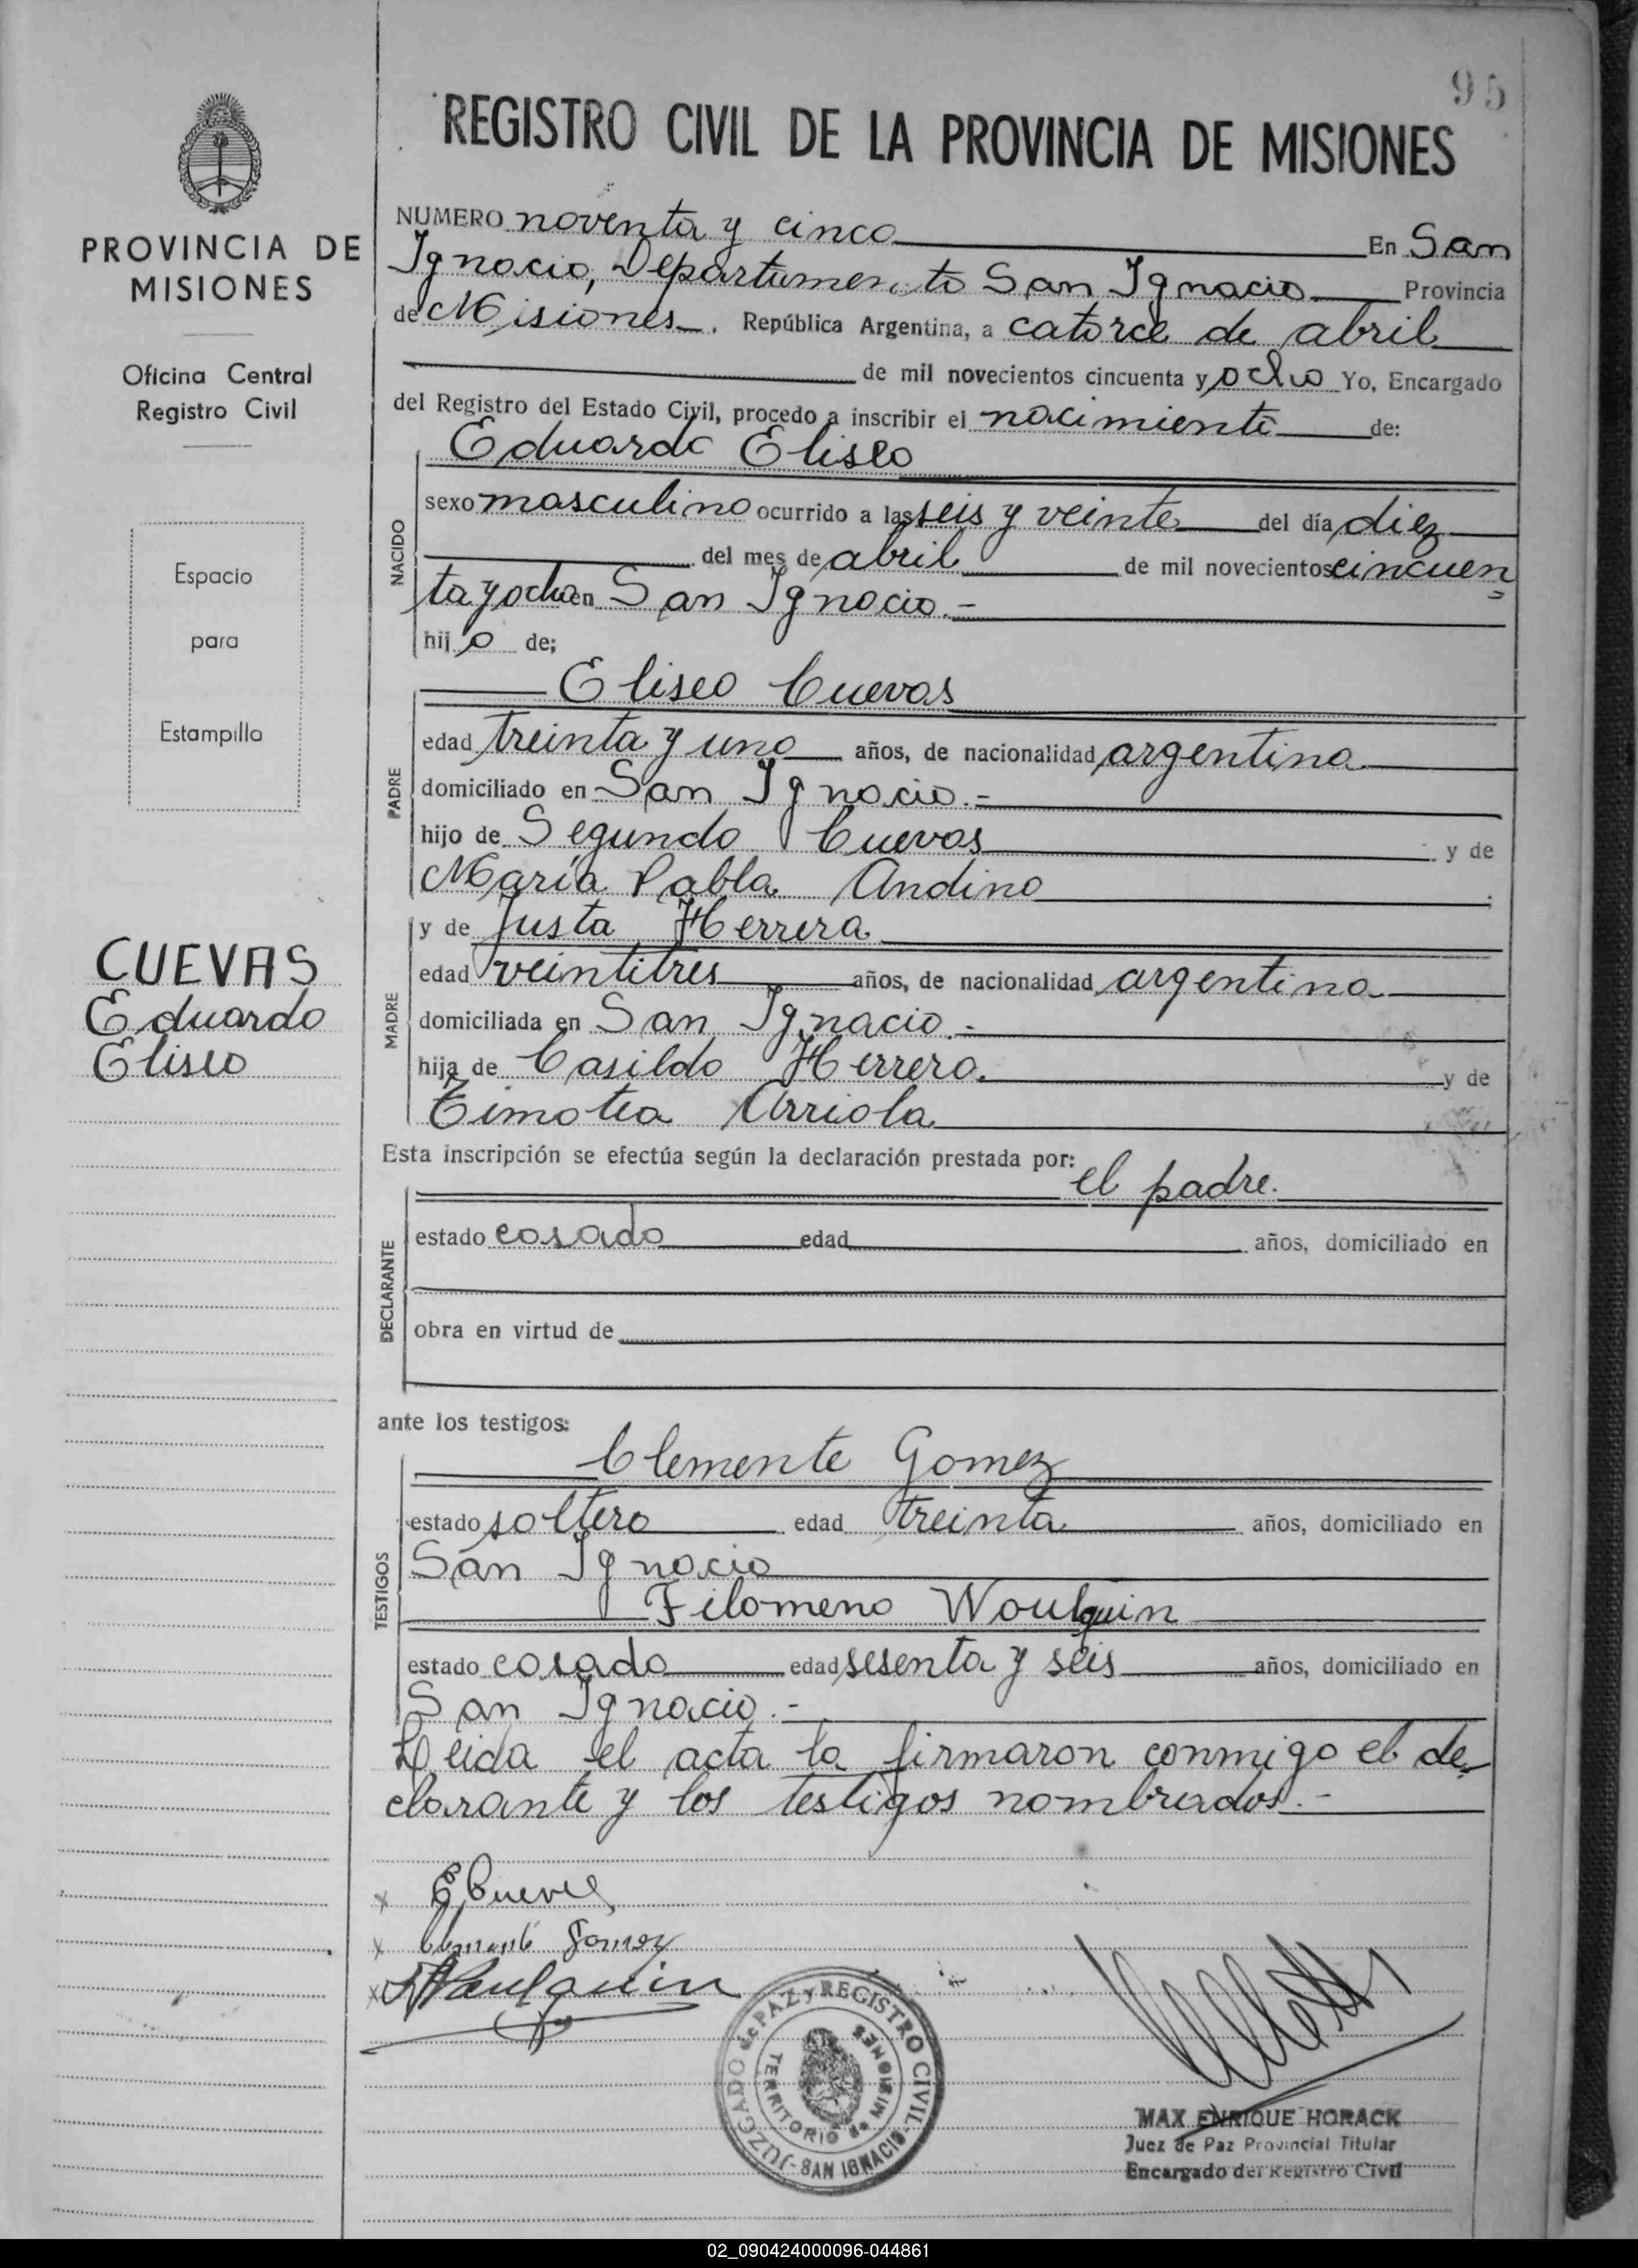 95
REGISTRO CIVIL DE LA PROVINCIA DE MISIONES
PROVINCIA DE
MISIONES
Oficina Central
Registro Civil
Espacio
para
Estampilla
CUEVAS
Eduardo
Eliseo
NUMERO noventa y cinco En San
Ignacio, Departamento San Ignacio Provincia
de Misiones. República Argentina, a catorce de abril
de mil novecientos cincuenta y ocho Yo, Encargado
del Registro del Estado Civil, procedo a inscribir el nacimiento de:
Eduardo Eliseo
NACIDO
sexo masculino ocurrido a las seis y veinte del día diez
del mes de abril de mil novecientos cincuen=
ta y ocho en San Ignacio.-
hijo de;
Eliseo Cuevas
PADRE
edad treinta y uno años, de nacionalidad argentina
domiciliado en San Ignacio.-
hijo de Segundo Cuevas y de
María Pabla Andino
MADRE
y de Justa Herrera
edad veintitres años, de nacionalidad argentina
domiciliada en San Ignacio.-
hija de Casildo Herrera y de
Timotea Arriola
Esta inscripción se efectúa según la declaración prestada por:
el padre.
DECLARANTE
estado casado edad años, domiciliado en
obra en virtud de
ante los testigos:
Clemente Gomez
TESTIGOS
estado soltero edad treinta años, domiciliado en
San Ignacio
Filomeno Woulquin
estado casado edad sesenta y seis años, domiciliado en
San Ignacio.-
Leida el acta la firmaron conmigo el de-
clarante y los testigos nombrados.-
E Cuevas
Clemente Gomez
JUZGADO de PAZ y REGISTRO CIVIL - SAN IGNACIO -
TERRITORIO de MISIONES
MAX ENRIQUE HORACK
Juez de Paz Provincial Titular
Encargado del Registro Civil
02_090424000096-044861